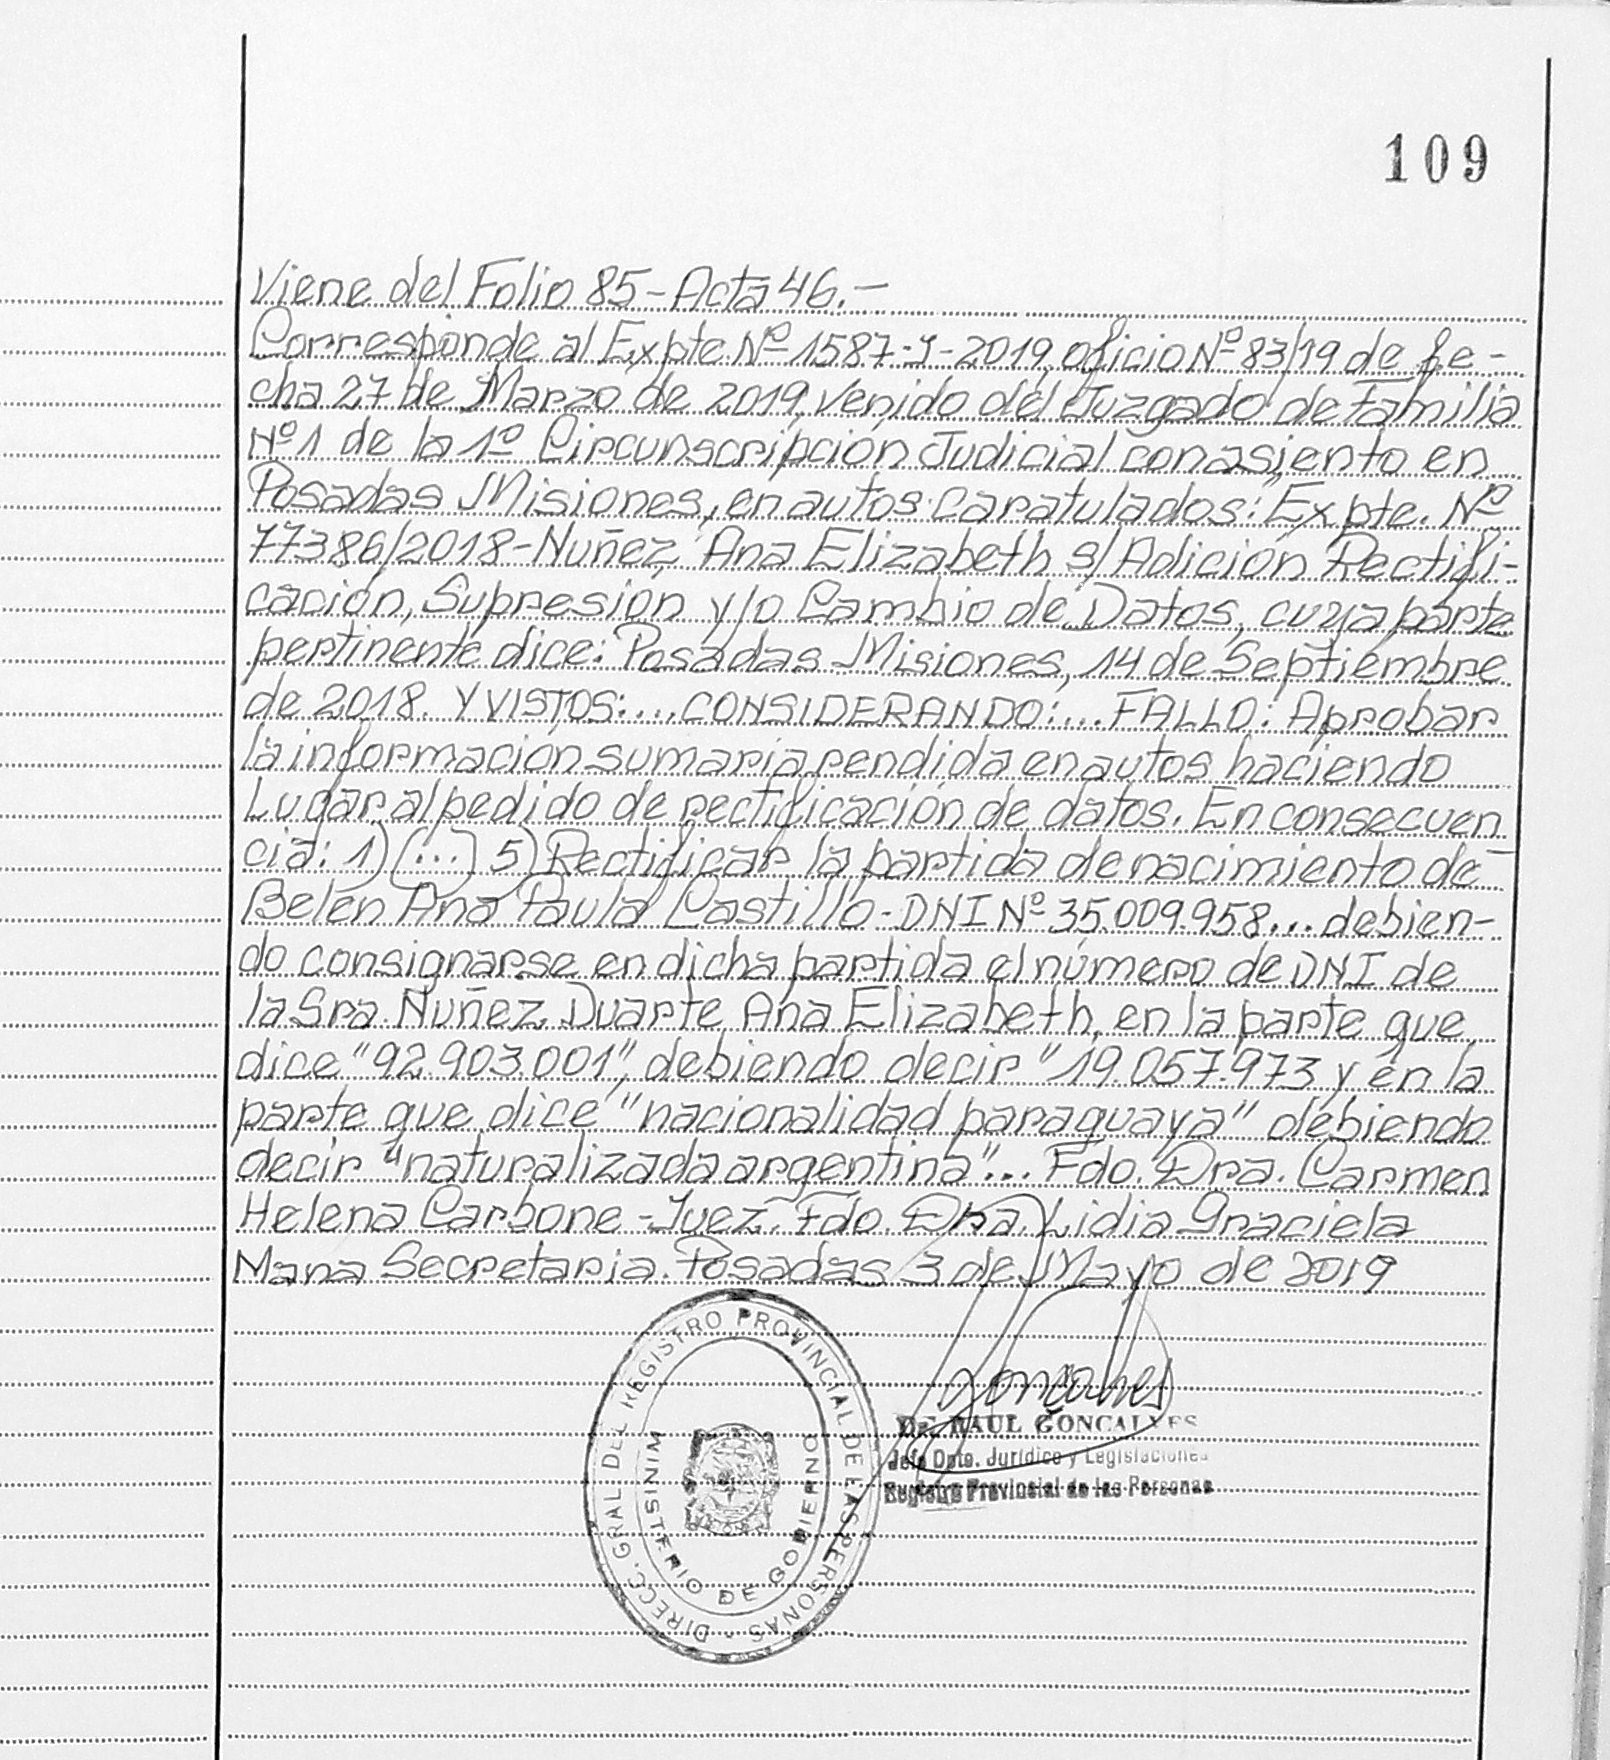 109
Viene del Folio 85-Acta 46.-
Corresponde al Expte Nº 1587-J-2019, oficio Nº 83/19 de fe-
cha 27 de Marzo de 2019, venido del Juzgado de Familia
Nº1 de la 1º Circunscripción Judicial con asiento en
Posadas Misiones, en autos caratulados: Expte. Nº
77386/2018-Nuñez Ana Elizabeth s/ Adición Rectifi-
cación, Supresión y/o Cambio de Datos, cuya parte
pertinente dice: Posadas Misiones, 14 de Septiembre
de 2018. Y VISTOS:... CONSIDERANDO:... FALLO: Aprobar
la información sumaria rendida en autos haciendo
Lugar al pedido de rectificación de datos. En consecuen
cia: 1) (...) 5) Rectificar la partida de nacimiento de
Belen Ana Paula Castillo - DNI Nº 35.009.958... debien-
do consignarse en dicha partida el número de DNI de
la Sra. Nuñez Duarte Ana Elizabeth, en la parte que
dice "92.903.001", debiendo decir "19.057.973 y en la
parte que dice "nacionalidad paraguaya" debiendo
decir "naturalizada argentina"... Fdo. Dra. Carmen
Helena Carbone - Juez. Fdo. Dra. Lidia Graciela
Mana Secretaria. Posadas 3 de Mayo de 2019
DIRECC. GRAL. DEL REGISTRO PROVINCIAL DE LAS PERSONAS
MINISTERIO DE GOBIERNO
Goncalves
RAUL GONCALVES
Jefe Dpto. Jurídico y Legislaciones
Registro Provincial de las Personas